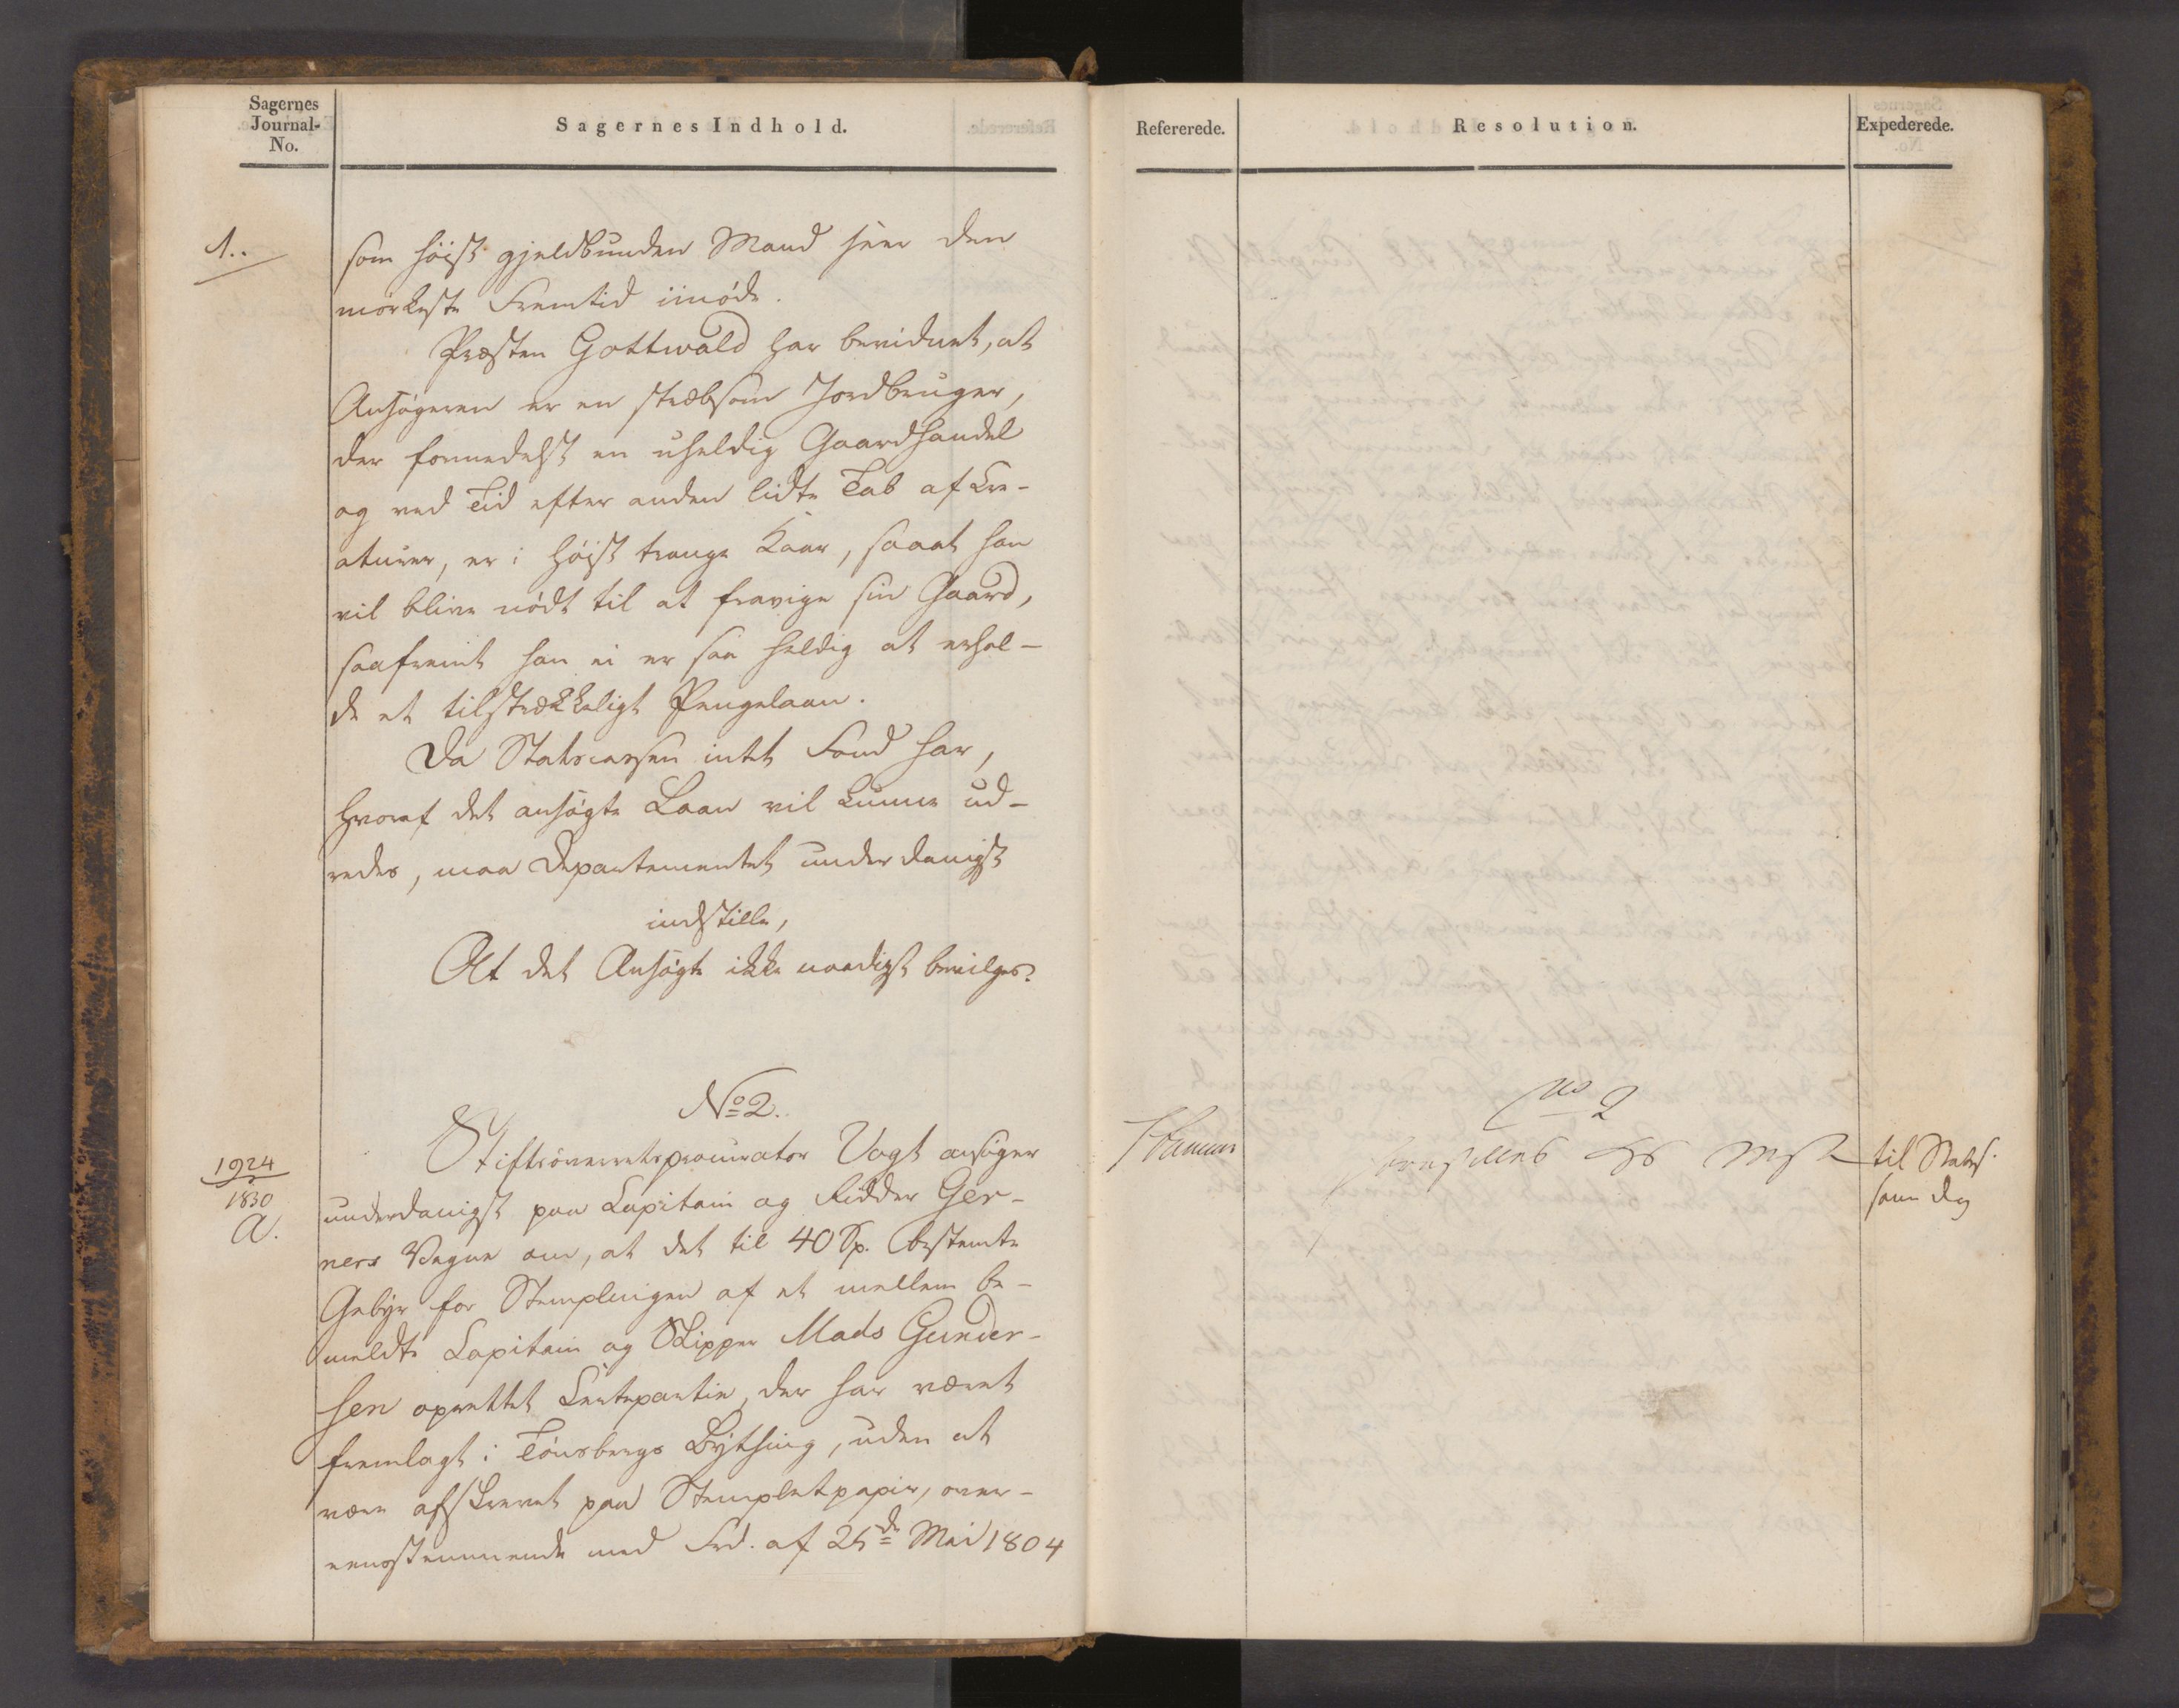 Sagernes
Journal-
No.
Sagernes Indhold.
1..
som høist gjeldbunden Mand seer den
mørkeste Fremtid imøde.
Præsten Gottwald har bevidnet, at
Ansøgeren er en stræbsom Jordbruger,
der formedelst en uheldig Gaardhandel
og ved Tid efter anden lidte Tab af Cre-
aturer, er i høist trange Kaar, saaat han
vil blive nødt til at fravige sin Gaard,
saafremt han ei er saa heldig at erhol-
de et tilstrækkeligt Pengelaan.
Da Statscassen intet Fond har,
hvoraf det ansøgte Laan vil kunne ud-
redes, maa Departementet underdanigst
indstille,
At det Ansøgte ikke naadigst bevilges.
No 2.
1924
1830
A.
Stiftsoverretsprocurator Vogt ansøger
underdanigst paa Capitain og Ridder Ger-
ners Vegne om, at det til 40 Sp. bestemte
Gebyr for Stemplingen af et mellem be-
meldte Capitain og Skipper Mads Gunder-
sen oprettet Certepartie, der har været
fremlagt i Tønsbergs Bything, uden at
være afskrevet paa Stemplet papir, over-
eensstemmende med Frd. af 25de Mai 1804
Refererede.
Resolution.
Expederede.
No 2
til Statss.
sam Dag